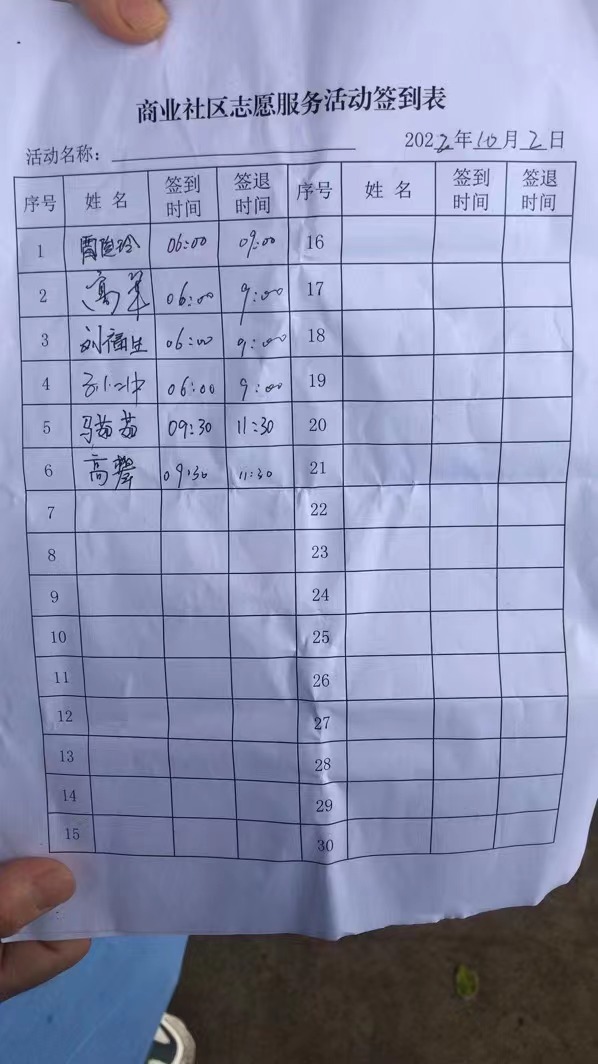 商业社区志愿服务活动签到表
活动名称： 2022年10月2日
序号 姓名 签到时间 签退时间 序号 姓名 签到时间 签退时间
1 06:00 09:00 16
2 高军 06:00 9:00 17
3 刘福生 06:00 9:00 18
4 06:00 9:00 19
5 马茹茹 09:30 11:30 20
6 高攀 09:30 11:30 21
7 22
8 23
9 24
10 25
11 26
12 27
13 28
14 29
15 30